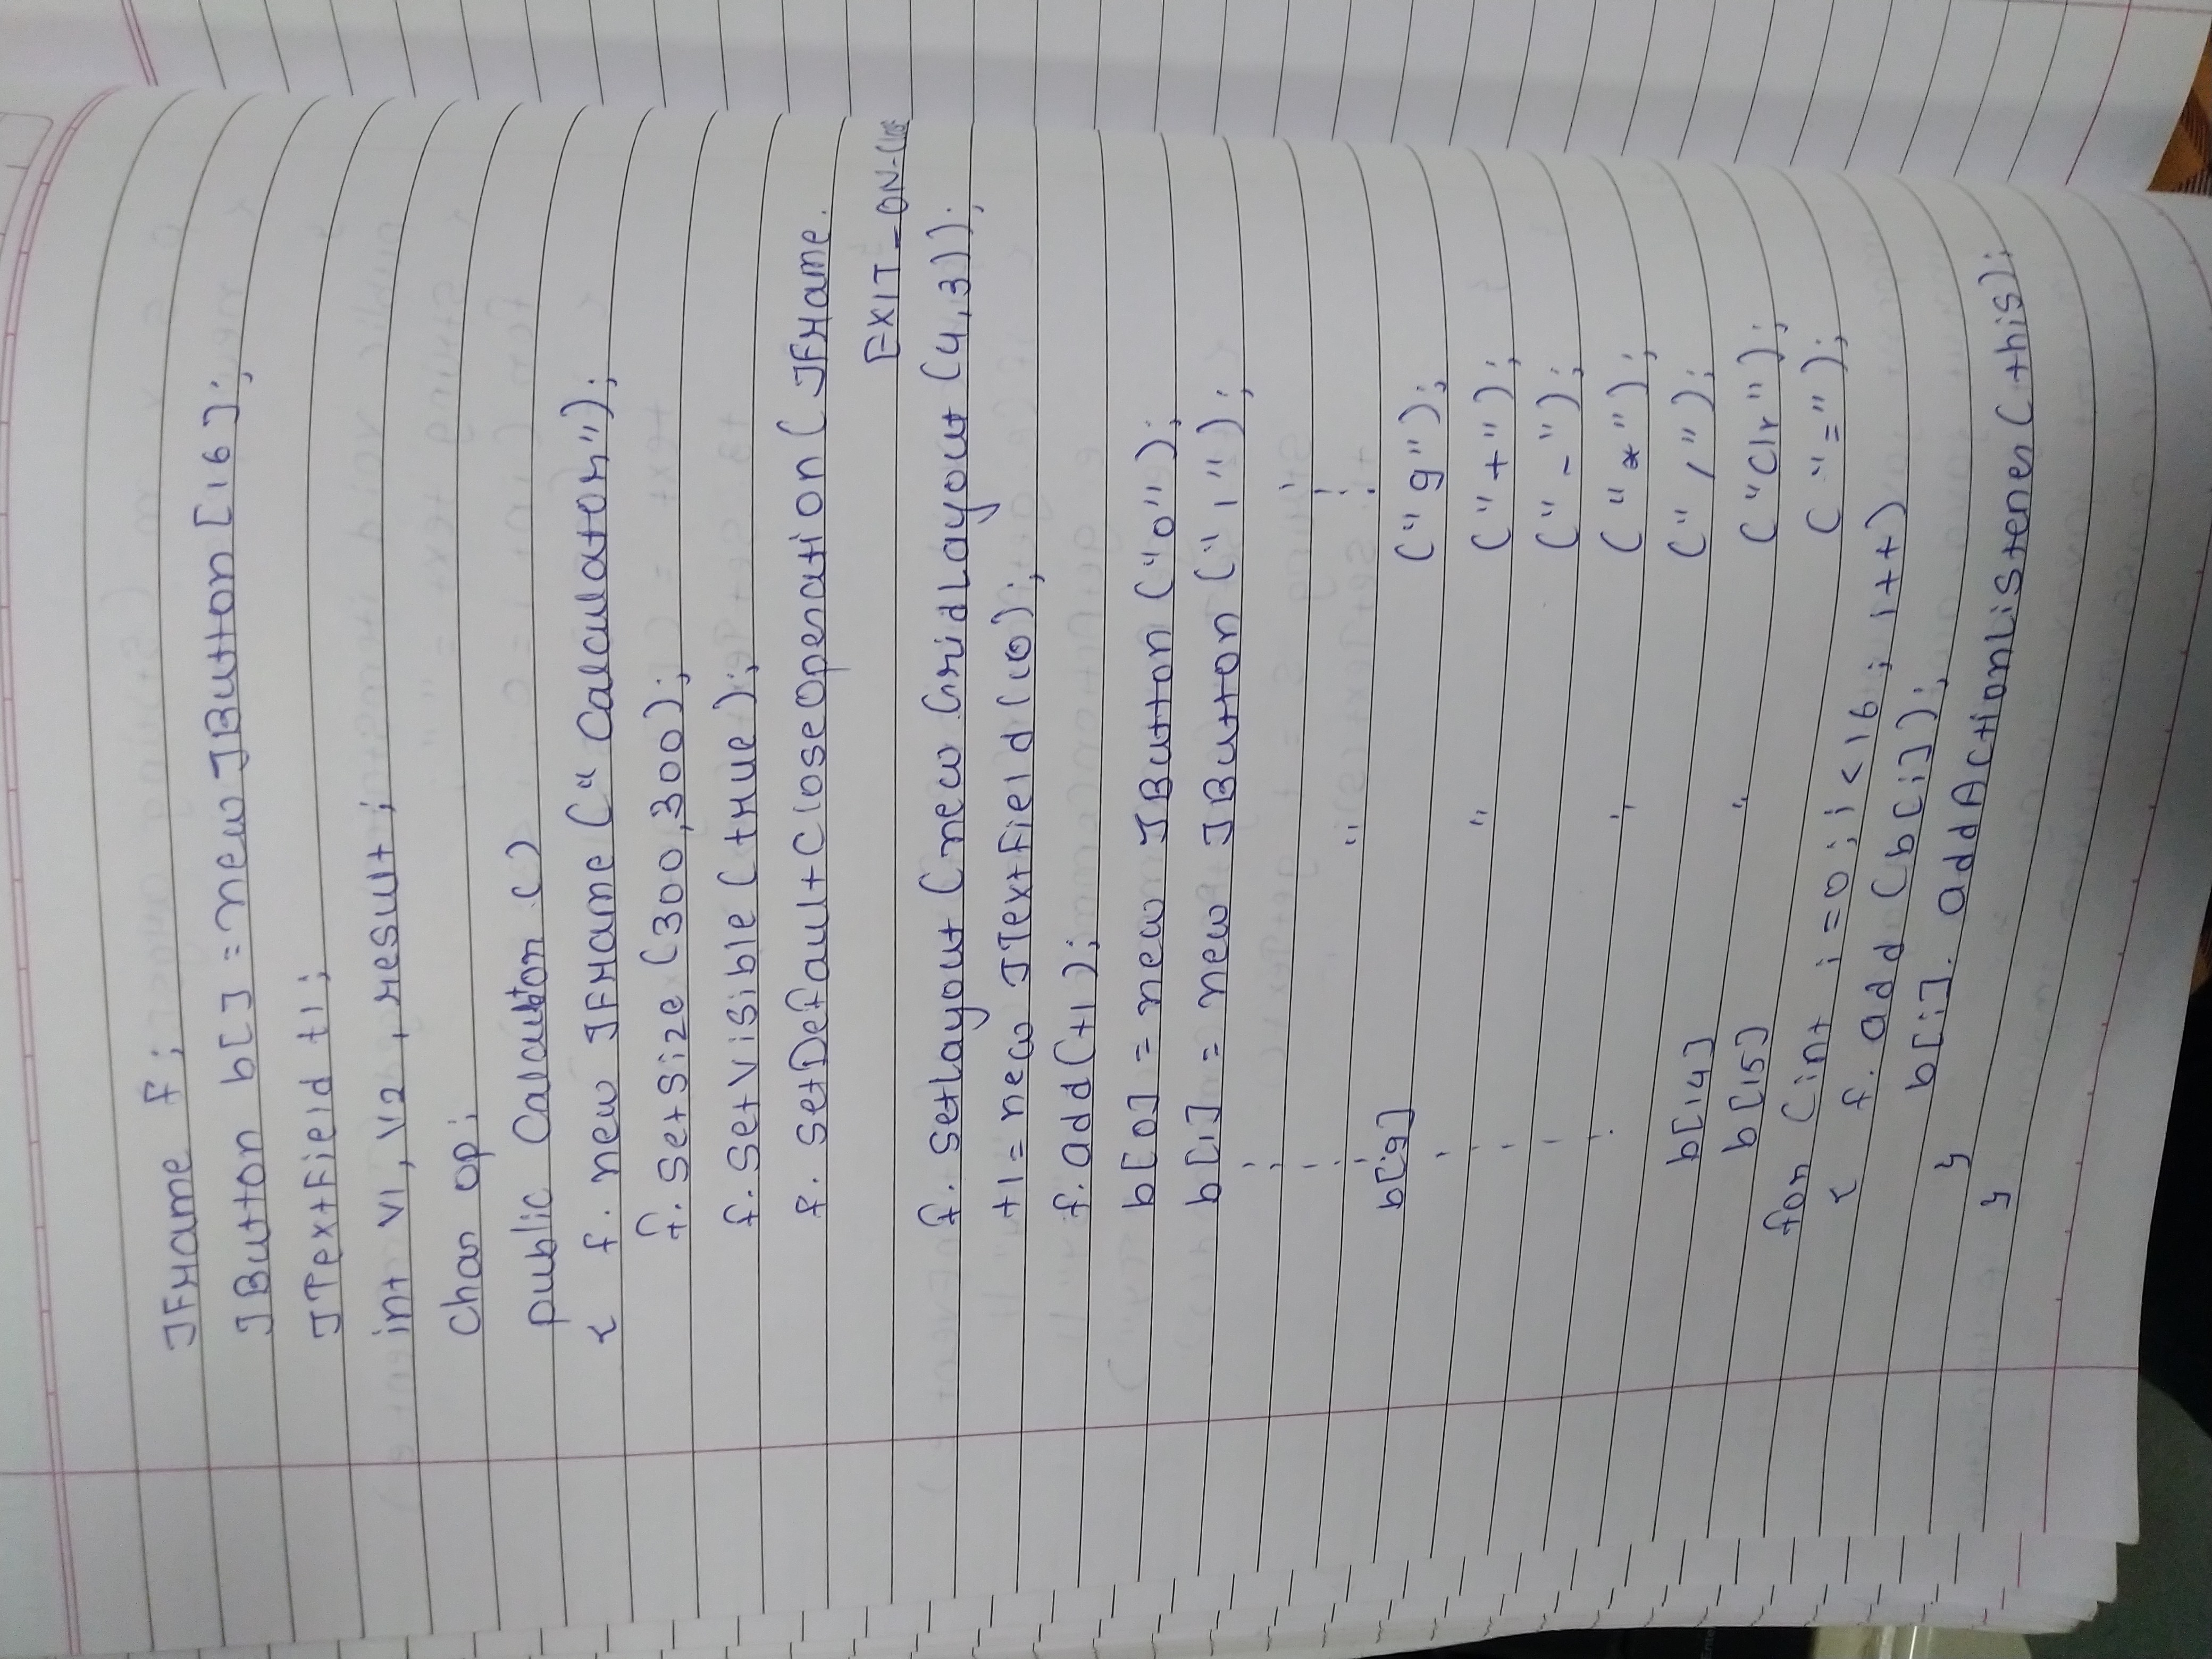 JFrame f;
JButton b[] = new JButton [16];
JTextField t1;
int v1, v2, result;
Char op;
public Calculator ()
{ f. new JFrame (" Calculator");
f. setsize (300,300);
f. setVisible (true);
f. setDefaultCloseOperation ( JFrame.
EXIT_ON-Close
f. setLayout (new GridLayout (4,3));
t1 = new JTextField (10);
f. add (t1);
b[0] = new JButton ("0");
b[1] = new JButton ("1");
"
b[9] ("9");
" ("+");
("-");
" ("*");
b[14] ("/");
b[15] " ("Clr");
("=");
for (int i=0; i<16; i++)
{ f. add (b[i]);
b[i]. addActionListener (this);
}
}